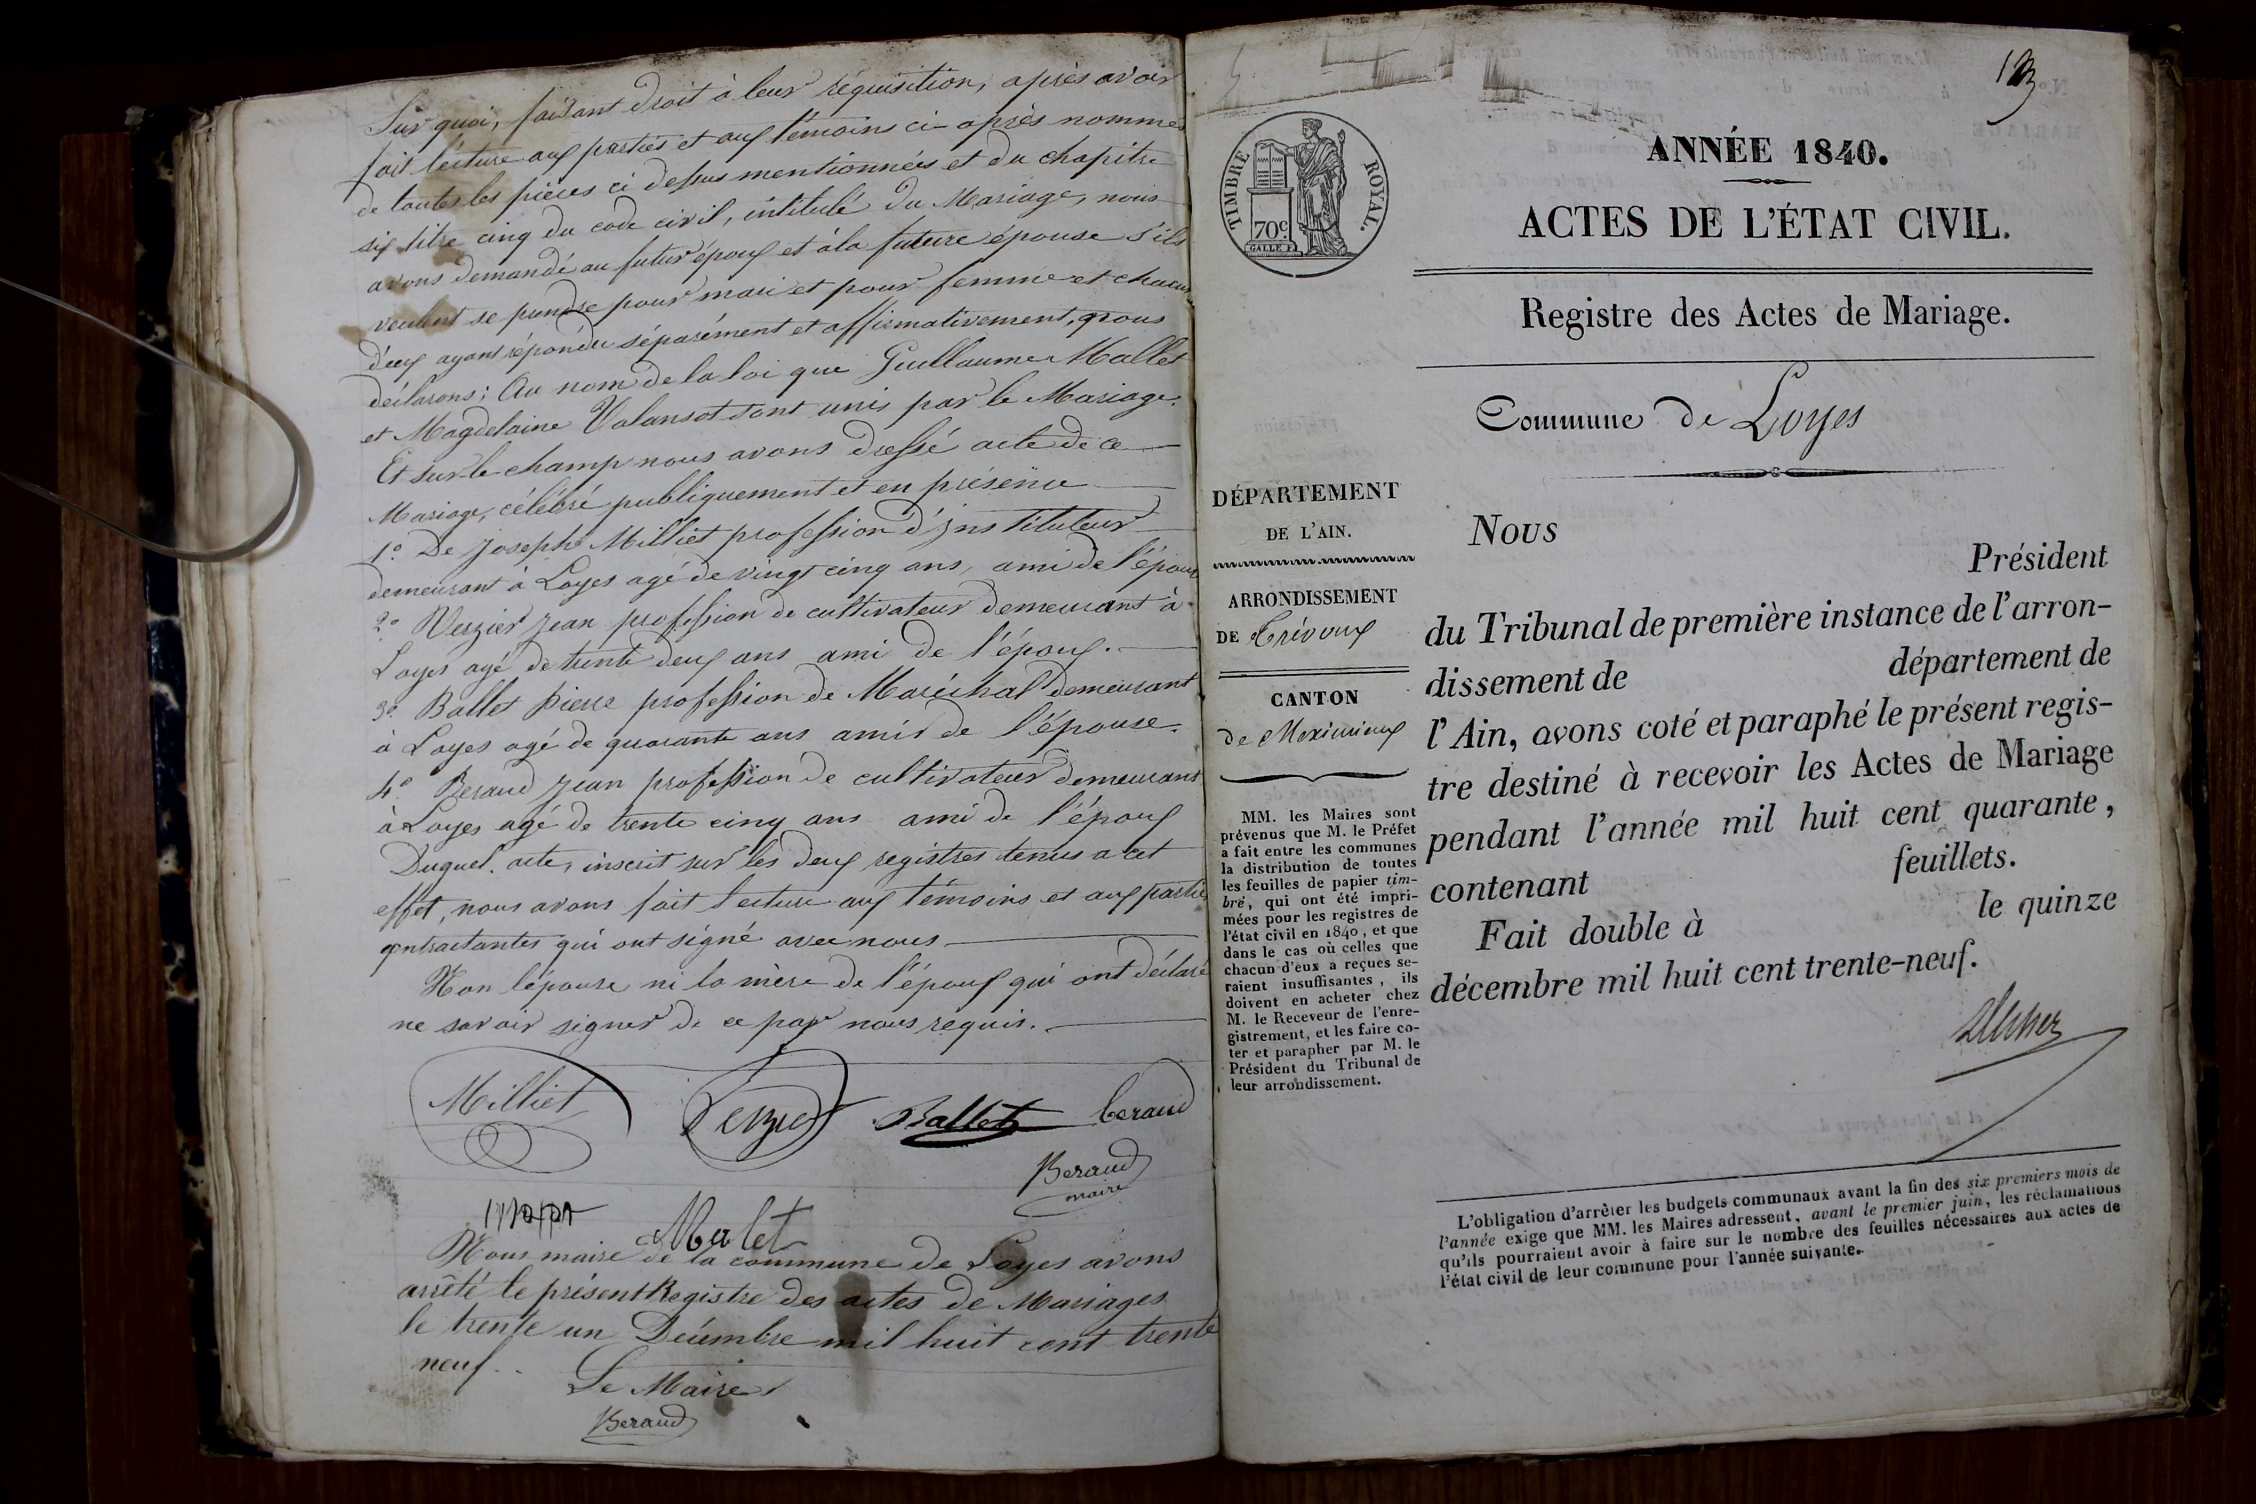 Sur quoi, faisant droit à leur réquisition, après avoir
fait lécture aux parties et aux témoins ci-après nommés
de toutes les pièces ci dessus mentionnées et du chapitre
six titre cinq du code civil, intitulé du Mariage, nous
avons demandé au futur époux et à la future épouse s'ils
veulent se prendre pour mari et pour femme et chacun
d'eux ayant répondu séparément et affirmativement, nous
déclarons; Au nom de la loi que Guillaume Mallet
et Magdelaine Valansot sont unis par le Mariage.
Et sur le champ nous avons dressé acte de ce
Mariage, célébré publiquement et en présence
1o. De Joseph Milliet profession d'Instituteur
demeurant à Loyes agé de vingt cinq ans, ami de l'époux
2o. Verzier Jean profession de cultivateur demeurant à
Loyes agé de trente deux ans ami de l'époux.
3o. Ballet Pierre profession de Maréchal demeurant
à Loyes agé de quarante ans amis de l'épouse.
4o. Beraud Jean profession de cultivateur demeurant
à Loyes agé de trente cinq ans ami de l'époux
Duquel acte, inscrit sur les deux registres tenus a cet
effet, nous avons fait lecture aux témoins et aux parties
contractantes qui ont signé avec nous
Non l'épouse ni la mère de l'époux qui ont déclaré
ne savoir signer de ce par nous requis.
Milliet Verzier Ballet beraud
Beraud
maire
Malet
Nous maire de la commune de Loyes avons
arrêté le présent Registre des actes de Mariages
le trente un Décembre mil huit cent trente
neuf..
Le Maire
Beraud
TIMBRE ROYAL.
70c.
ANNÉE 1840.
ACTES DE L'ÉTAT CIVIL.
Registre des Actes de Mariage.
Commune de Loyes
DÉPARTEMENT
DE L'AIN.
ARRONDISSEMENT
DE Trévoux
CANTON
de Meximieux
MM. les Maires sont
prévenus que M. le Préfet
a fait entre les communes
la distribution de toutes
les feuilles de papier tim-
bré, qui ont été impri-
mées pour les registres de
l'état civil en 1840, et que
dans le cas où celles que
chacun d'eux a reçues se-
raient insuffisantes, ils
doivent en acheter chez
M. le Receveur de l'enre-
gistrement, et les faire co-
ter et parapher par M. le
Président du Tribunal de
leur arrondissement.
Nous
Président
du Tribunal de première instance de l'arron-
dissement de département de
l'Ain, avons coté et paraphé le présent regis-
tre destiné à recevoir les Actes de Mariage
pendant l'année mil huit cent quarante,
contenant feuillets.
Fait double à le quinze
décembre mil huit cent trente-neuf.
L'obligation d'arrêter les budgets communaux avant la fin des six premiers mois de
l'année exige que MM. les Maires adressent, avant le premier juin, les réclamations
qu'ils pourraient avoir à faire sur le nombre des feuilles nécessaires aux actes de
l'état civil de leur commune pour l'année suivante.